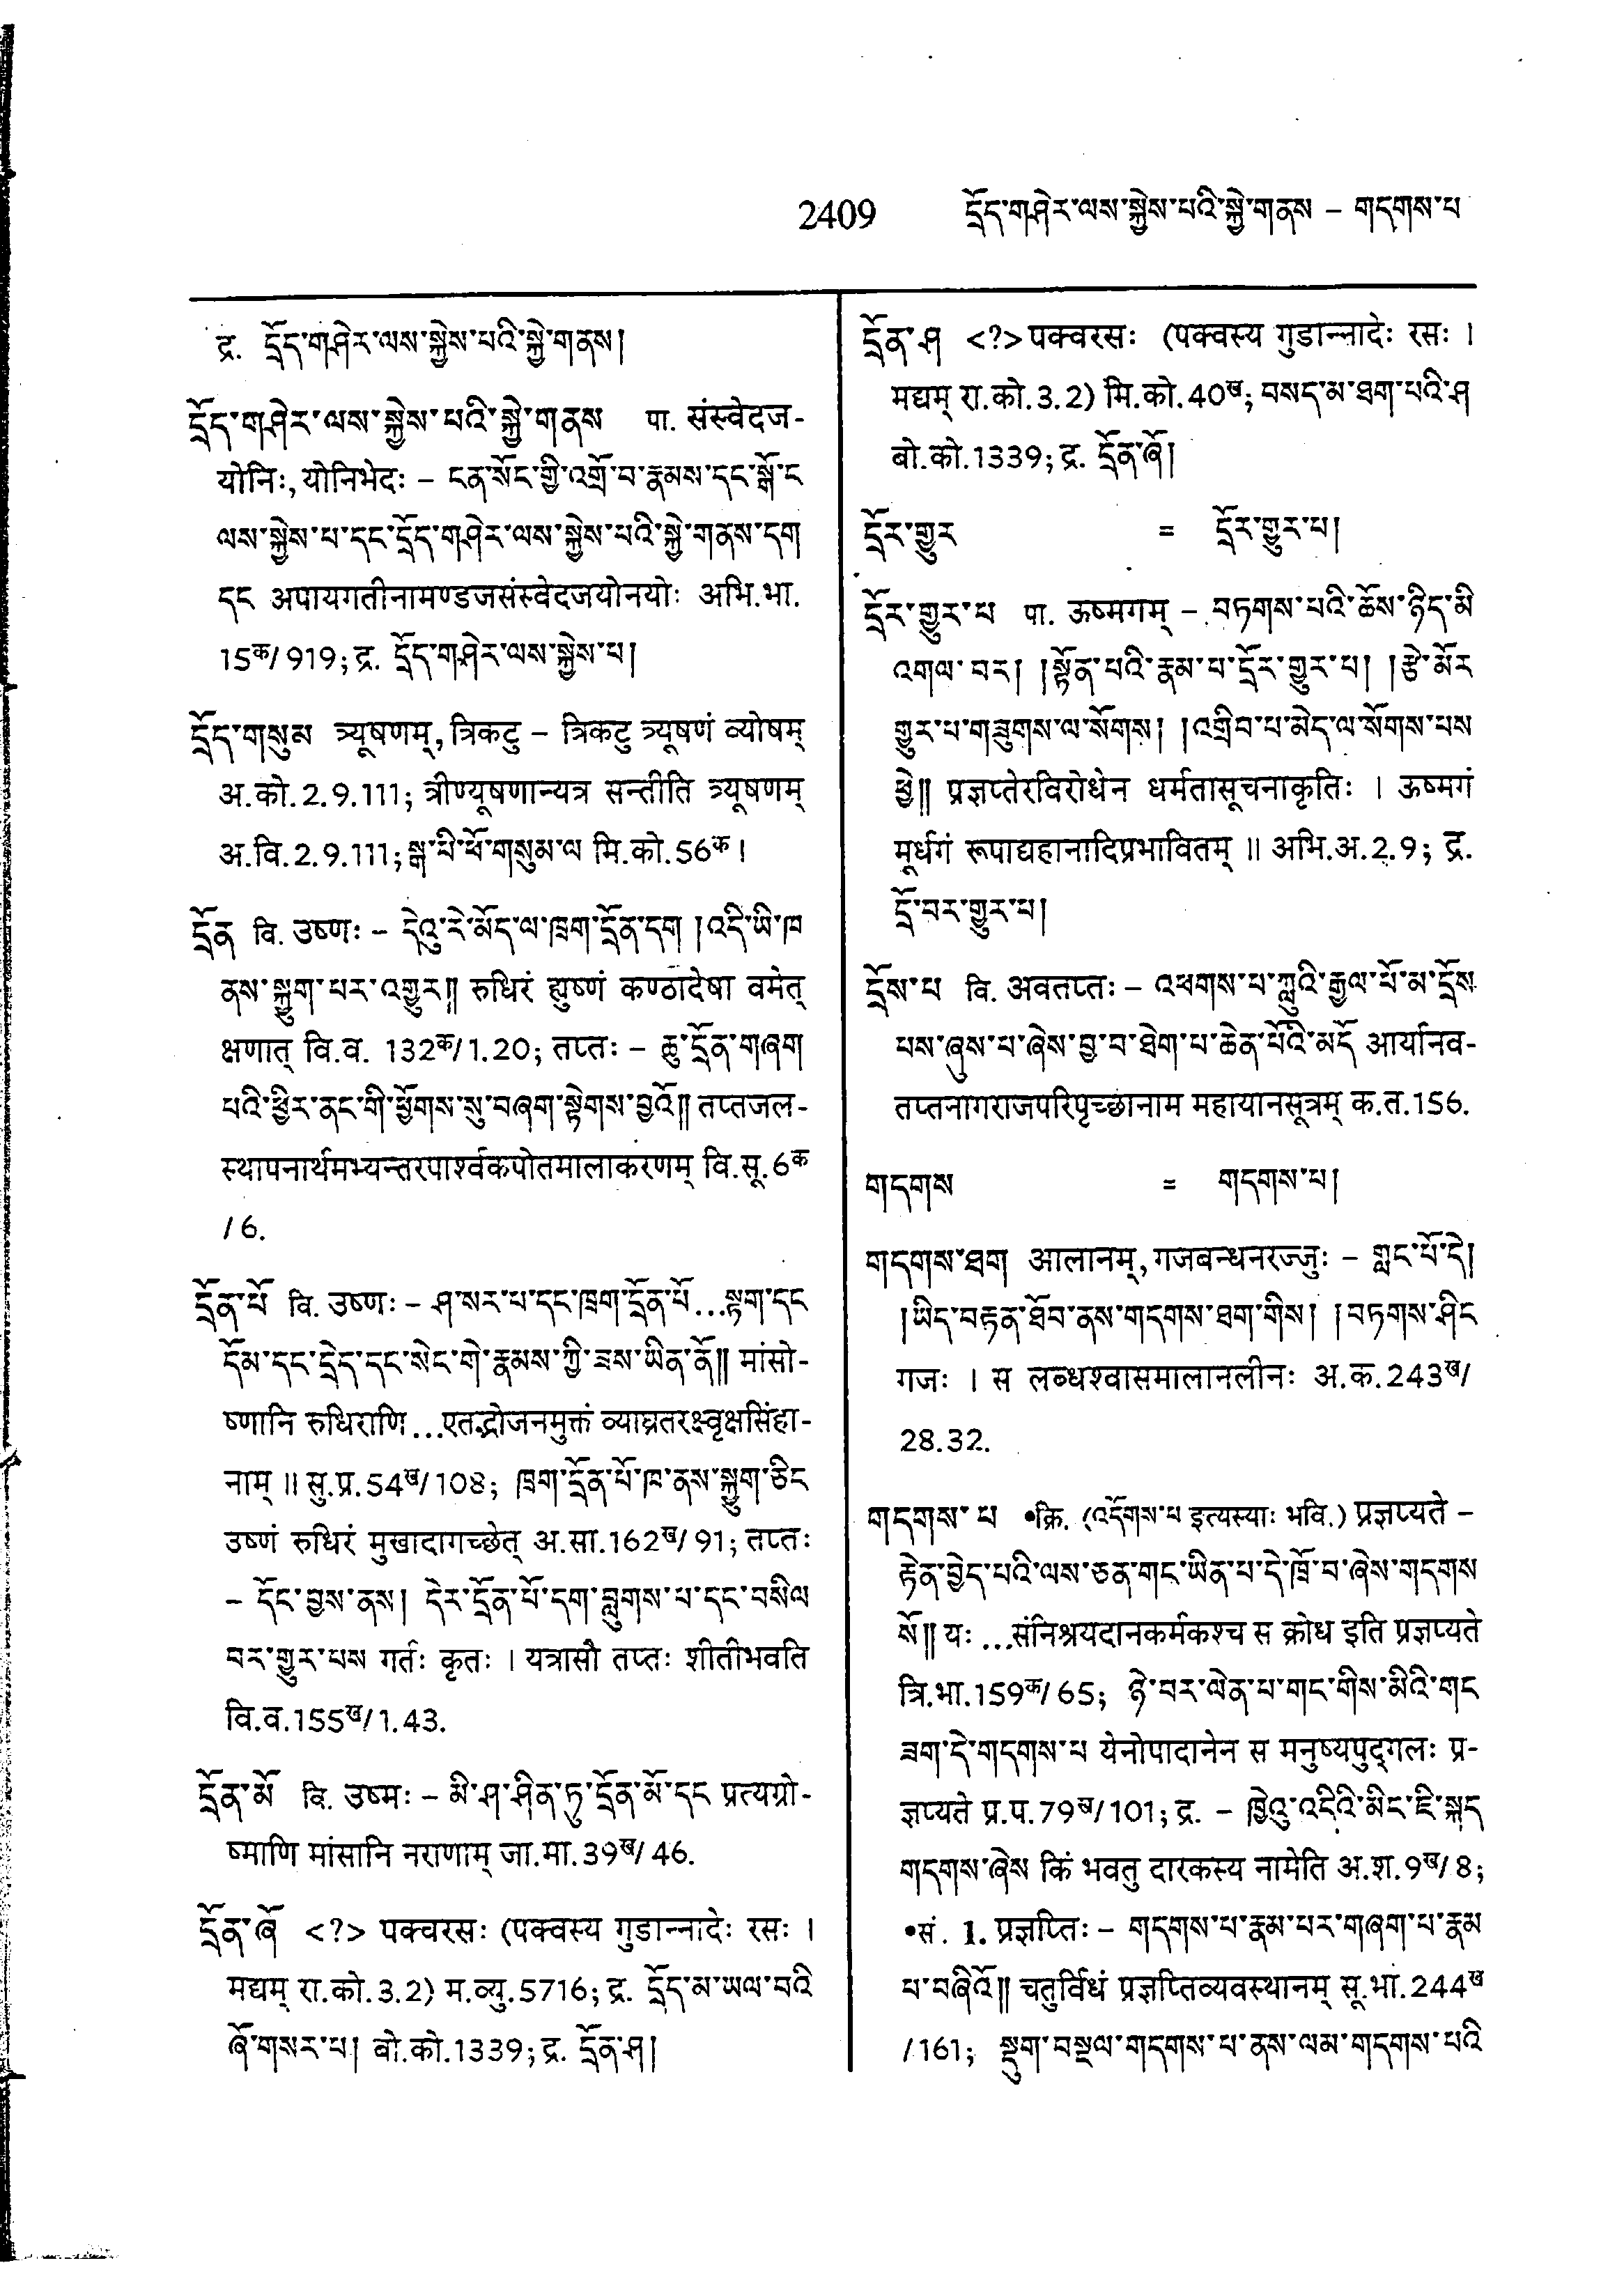 2409 དྲོད་གཤེར་ལས་སྐྱེས་པའི་སྐྱེ་གནས – གདགས་པ
द्र. དྲོད་གཤེར་ལས་སྐྱེས་པའི་སྐྱེ་གནས།
དྲོད་གཤེར་ལས་སྐྱེས་པའི་སྐྱེ་གནས पा. संस्वेदज-
योनिः, योनिभेदः – ངན་སོང་གྱི་འགྲོ་བ་རྣམས་དང་སྒོ་ང
ལས་སྐྱེས་པ་དང་དྲོད་གཤེར་ལས་སྐྱེས་པའི་སྐྱེ་གནས་དག
དང अपायगतीनामण्डजसंस्वेदजयोनयोः अभि.भा.
15क/919; द्र. དྲོད་གཤེར་ལས་སྐྱེས་པ།
དྲོད་གསུམ त्र्यूषणम्, त्रिकटु – त्रिकटु त्र्यूषणं व्योषम्
अ.को.2.9.111; त्रीण्यूषणान्यत्र सन्तीति त्र्यूषणम्
अ.वि.2.9.111; སྒ་པི་ཕོ་གསུམ་ལ मि.को.56क।
དྲོན वि. उष्णः – དེའུ་རེ་མོད་ལ་ཁྲག་དྲོན་དག །འདི་ཡི་ཁ
ནས་སྐྱུག་པར་འགྱུར༎ रुधिरं ह्युष्णं कण्ठादेषा वमेत्
क्षणात् वि.व. 132क/1.20; तप्तः – ཆུ་དྲོན་གཞག
པའི་ཕྱིར་ནང་གི་ཕྱོགས་སུ་བཞག་སྟེགས་བྱའོ༎ तप्तजल-
स्थापनार्थमभ्यन्तरपार्श्वकपोतमालाकरणम् वि.सू.6क
/6.
དྲོན་པོ वि. उष्णः – ཤ་སར་པ་དང་ཁྲག་དྲོན་པོ...སྟག་དང
དོམ་དང་དྲེད་དང་སེང་གེ་རྣམས་ཀྱི་ཟས་ཡིན་ནོ༎ मांसो-
ष्णानि रुधिराणि ...एतद्भोजनमुक्तं व्याघ्रतरक्ष्वृक्षसिंहा-
नाम् ॥ सु.प्र.54ख/108; ཁྲག་དྲོན་པོ་ཁ་ནས་སྐྱུག་ཅིང
उष्णं रुधिरं मुखादागच्छेत् अ.सा.162ख/91; तप्तः
– དོང་བྱས་ནས། དེར་དྲོན་པོ་དག་བླུགས་པ་དང་བསིལ
བར་གྱུར་པས गर्तः कृतः । यत्रासौ तप्तः शीतीभवति
वि.व.155ख/1.43.
དྲོན་མོ वि. उष्मः – མི་ཤ་ཤིན་ཏུ་དྲོན་མོ་དང प्रत्यग्रो-
ष्माणि मांसानि नराणाम् जा.मा.39ख/46.
དྲོན་ཞོ <?> पक्वरसः (पक्वस्य गुडान्नादेः रसः ।
मद्यम् रा.को.3.2) म.व्यु.5716; द्र. དྲོད་མ་ཡལ་བའི
ཞོ་གསར་པ། बो.को.1339; द्र. དྲོན་ཤ།
དྲོན་ཤ <?> पक्वरसः (पक्वस्य गुडान्नादेः रसः ।
मद्यम् रा.को.3.2) मि.को.40ख; བསད་མ་ཐག་པའི་ཤ
बो.को.1339; द्र. དྲོན་ཞོ།
དྲོར་གྱུར = དྲོར་གྱུར་པ།
དྲོར་གྱུར་པ पा. ऊष्मगम् – བཏགས་པའི་ཆོས་ཉིད་མི
འགལ་བར། །སྟོན་པའི་རྣམ་པ་དྲོར་གྱུར་པ། །རྩེ་མོར
གྱུར་པ་གཟུགས་ལ་སོགས། །འགྲིབ་པ་མེད་ལ་སོགས་པས
ཕྱེ༎ प्रज्ञप्तेरविरोधेन धर्मतासूचनाकृतिः । ऊष्मगं
मूर्धगं रूपाद्यहानादिप्रभावितम् ॥ अभि.अ.2.9; द्र.
དྲོ་བར་གྱུར་པ།
དྲོས་པ वि. अवतप्तः – འཕགས་པ་ཀླུའི་རྒྱལ་པོ་མ་དྲོས
པས་ཞུས་པ་ཞེས་བྱ་བ་ཐེག་པ་ཆེན་པོའི་མདོ आर्यानव-
तप्तनागराजपरिपृच्छानाम महायानसूत्रम् क.त.156.
གདགས = གདགས་པ།
གདགས་ཐག आलानम्, गजबन्धनरज्जुः – གླང་པོ་དེ།
།ཡིད་བརྟན་ཐོབ་ནས་གདགས་ཐག་གིས། །བཏགས་ཤིང
गजः । स लब्धश्वासमालानलीनः अ.क.243ख/
28.32.
གདགས་པ •क्रि. (འདོགས་པ इत्यस्याः भवि.) प्रज्ञप्यते –
རྟེན་བྱེད་པའི་ལས་ཅན་གང་ཡིན་པ་དེ་ཁྲོ་བ་ཞེས་གདགས
སོ༎ यः ...संनिश्रयदानकर्मकश्च स क्रोध इति प्रज्ञप्यते
त्रि.भा.159क/65; ཉེ་བར་ལེན་པ་གང་གིས་མིའི་གང
ཟག་དེ་གདགས་པ येनोपादानेन स मनुष्यपुद्गलः प्र-
ज्ञप्यते प्र.प.79ख/101; द्र. – ཁྱེའུ་འདིའི་མིང་ཇི་སྐད
གདགས་ཞེས किं भवतु दारकस्य नामेति अ.श.9ख/8;
•सं. 1. प्रज्ञप्तिः – གདགས་པ་རྣམ་པར་གཞག་པ་རྣམ
པ་བཞིའོ༎ चतुर्विधं प्रज्ञप्तिव्यवस्थानम् सू.भा.244ख
/161; སྡུག་བསྔལ་གདགས་པ་ནས་ལམ་གདགས་པའི